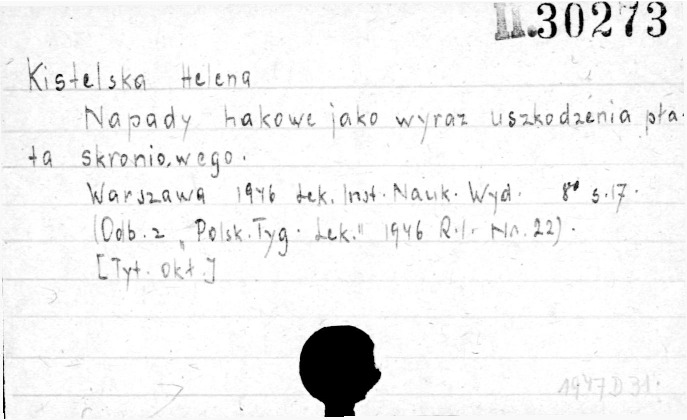 II.30273
Kistelska Helena
Napady hakowe jako wyraz uszkodzenia pła-
ta skroniowego.
Warszawa 1946 Lek. Inst. Nauk. Wyd. 8° s.17.
(Odb. z „Polsk. Tyg. Lek." 1946 R.1. Nr. 22).
[Tyt. okł.]
1947 D 31.